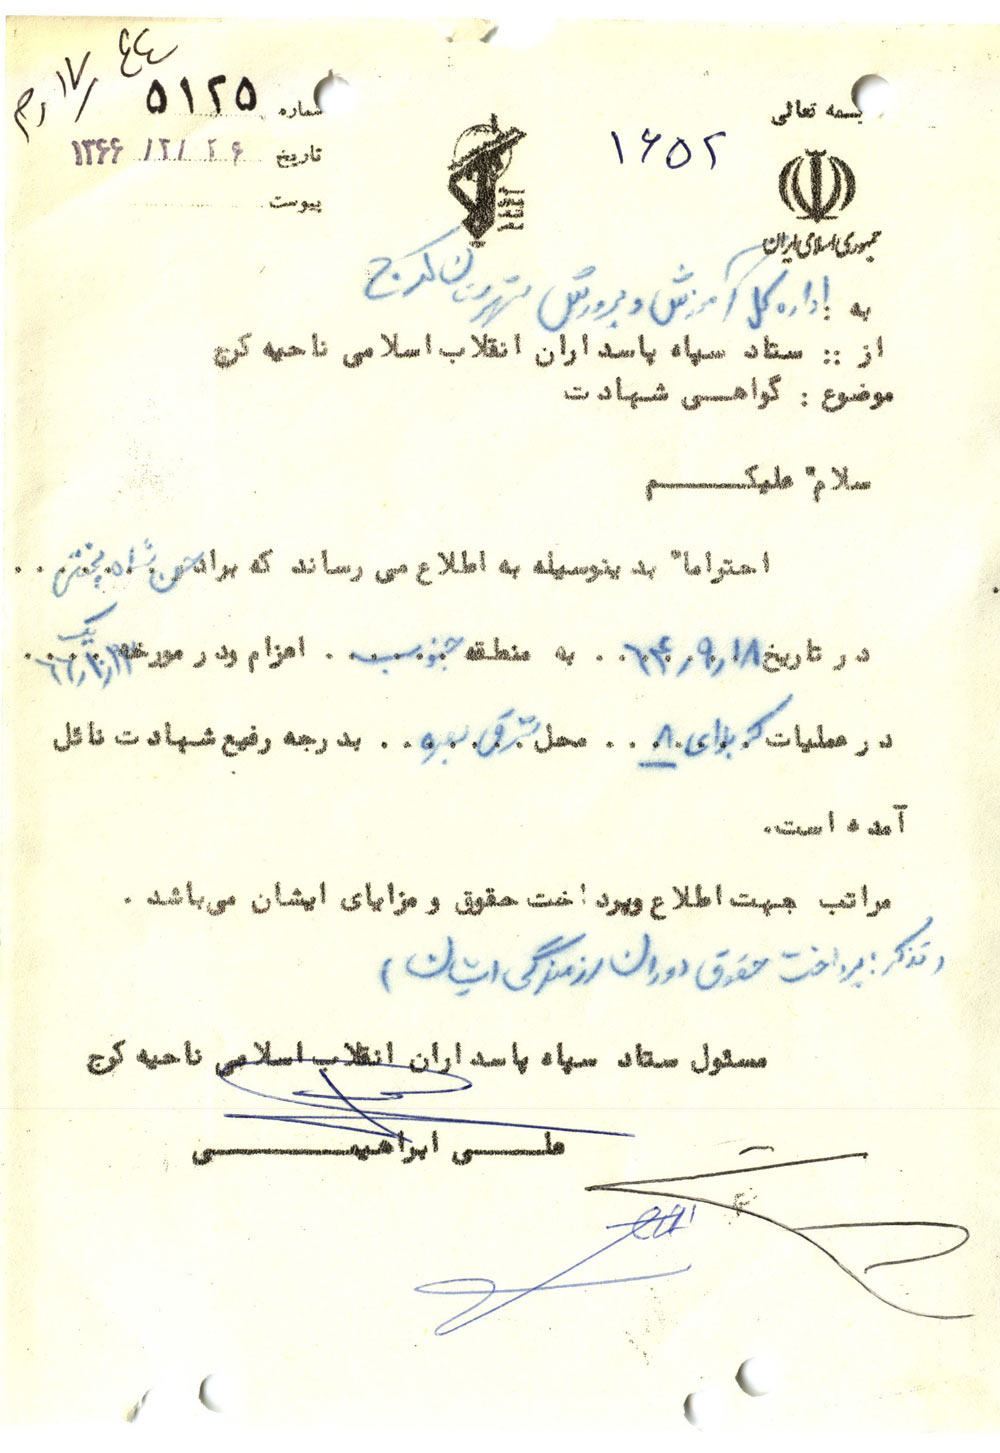 بسمه تعالی
جمهوری اسلامی ایران
۱۶۵۲
۴۴
م ر ۱۷
شماره ۵۱۲۵
تاریخ ۱۳۶۶/۱۲/۲۶
پیوست
به : اداره کل آموزش و پرورش شهرستان کرج
از :: ستاد سپاه پاسداران انقلاب اسلامی ناحیه کرج
موضوع : گواهی شهادت
سلام" علیکم
احتراما" بدینوسیله به اطلاع می رساند که برادر حسن شاه بخش
در تاریخ ۶۴٫۹٫۱۸ به منطقه جنوب اعزام ودر مورخه
در عملیات کربلای ۸ محل شرق بصره بدرجه رفیع شهادت نائل
آمده است.
مراتب جهت اطلاع وپرداخت حقوق و مزایای ایشان می‌باشد .
( تذکر : پرداخت حقوق دوران رزمندگی ایشان )
مسئول ستاد سپاه پاسداران انقلاب اسلامی ناحیه کرج
علی ابراهیمی